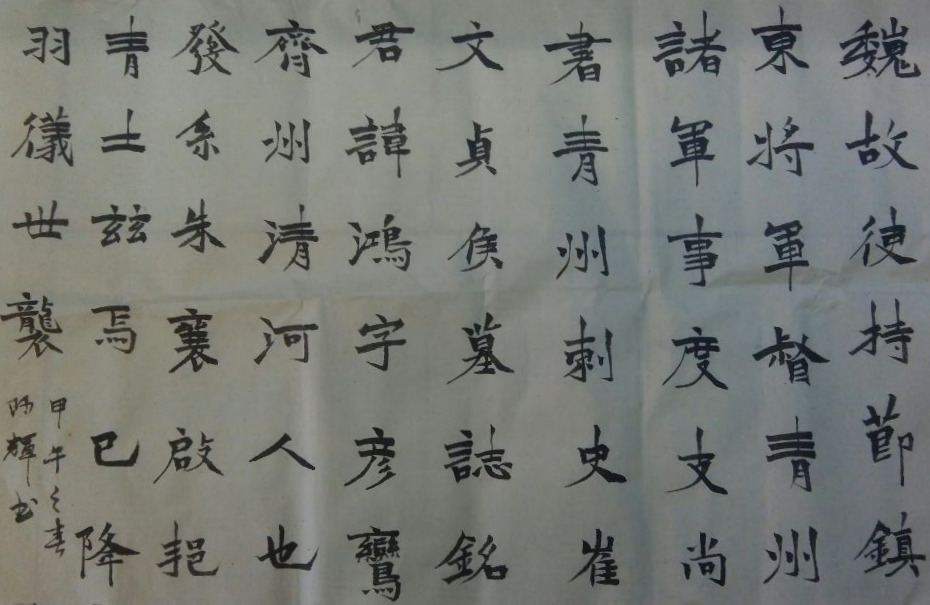 魏故使持節鎮
東將軍督青州
諸軍事度支尚
書青州刺史崔
文貞侯墓誌銘
君諱鴻字彦鸞
齊州清河人也
發系朱襄啟挹
青土兹焉已降
羽儀世襲
甲午之春
輝书